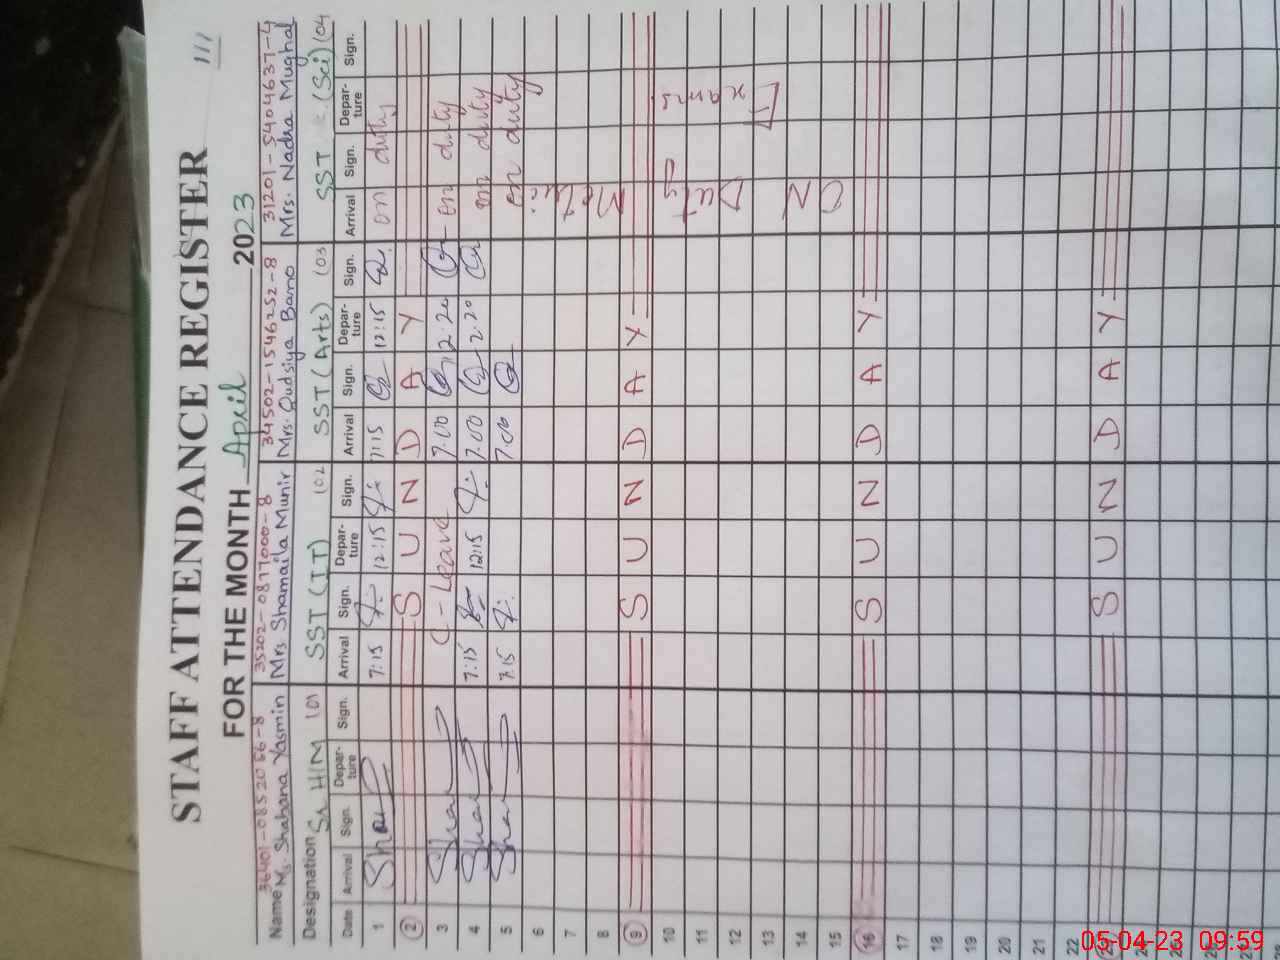 111
STAFF ATTENDANCE REGISTER
FOR THE MONTH April 2023
36401-0852056-8 35202-0877000-8 34502-1546252-8 31201-5404637-4
Name Ms. Shabana Yasmin Mrs. Shamaila Munir Mrs. Qudsiya Bano Mrs. Nadra Mughal
Designation Sr H/M 101 SST (IT) 102 SST (Arts) 103 SST (Sci) 104
Date Arrival Sign. Depar-ture Sign. Arrival Sign. Depar-ture Sign. Arrival Sign. Depar-ture Sign. Arrival Sign. Depar-ture Sign.
1 7:15 12:15 7:15 12:15 on duty
2 SUNDAY
3 C-Leave 7.00 2.20 on duty
4 7:15 12:15 7.00 2.20 on duty
5 7.15 7.00 on duty
6
7
8
9 SUNDAY
10
11
12
13
14
15
ON Duty
16 SUNDAY
17
18
19
20
21
22
23 SUNDAY
24
25
26
27
05-04-23 09:59